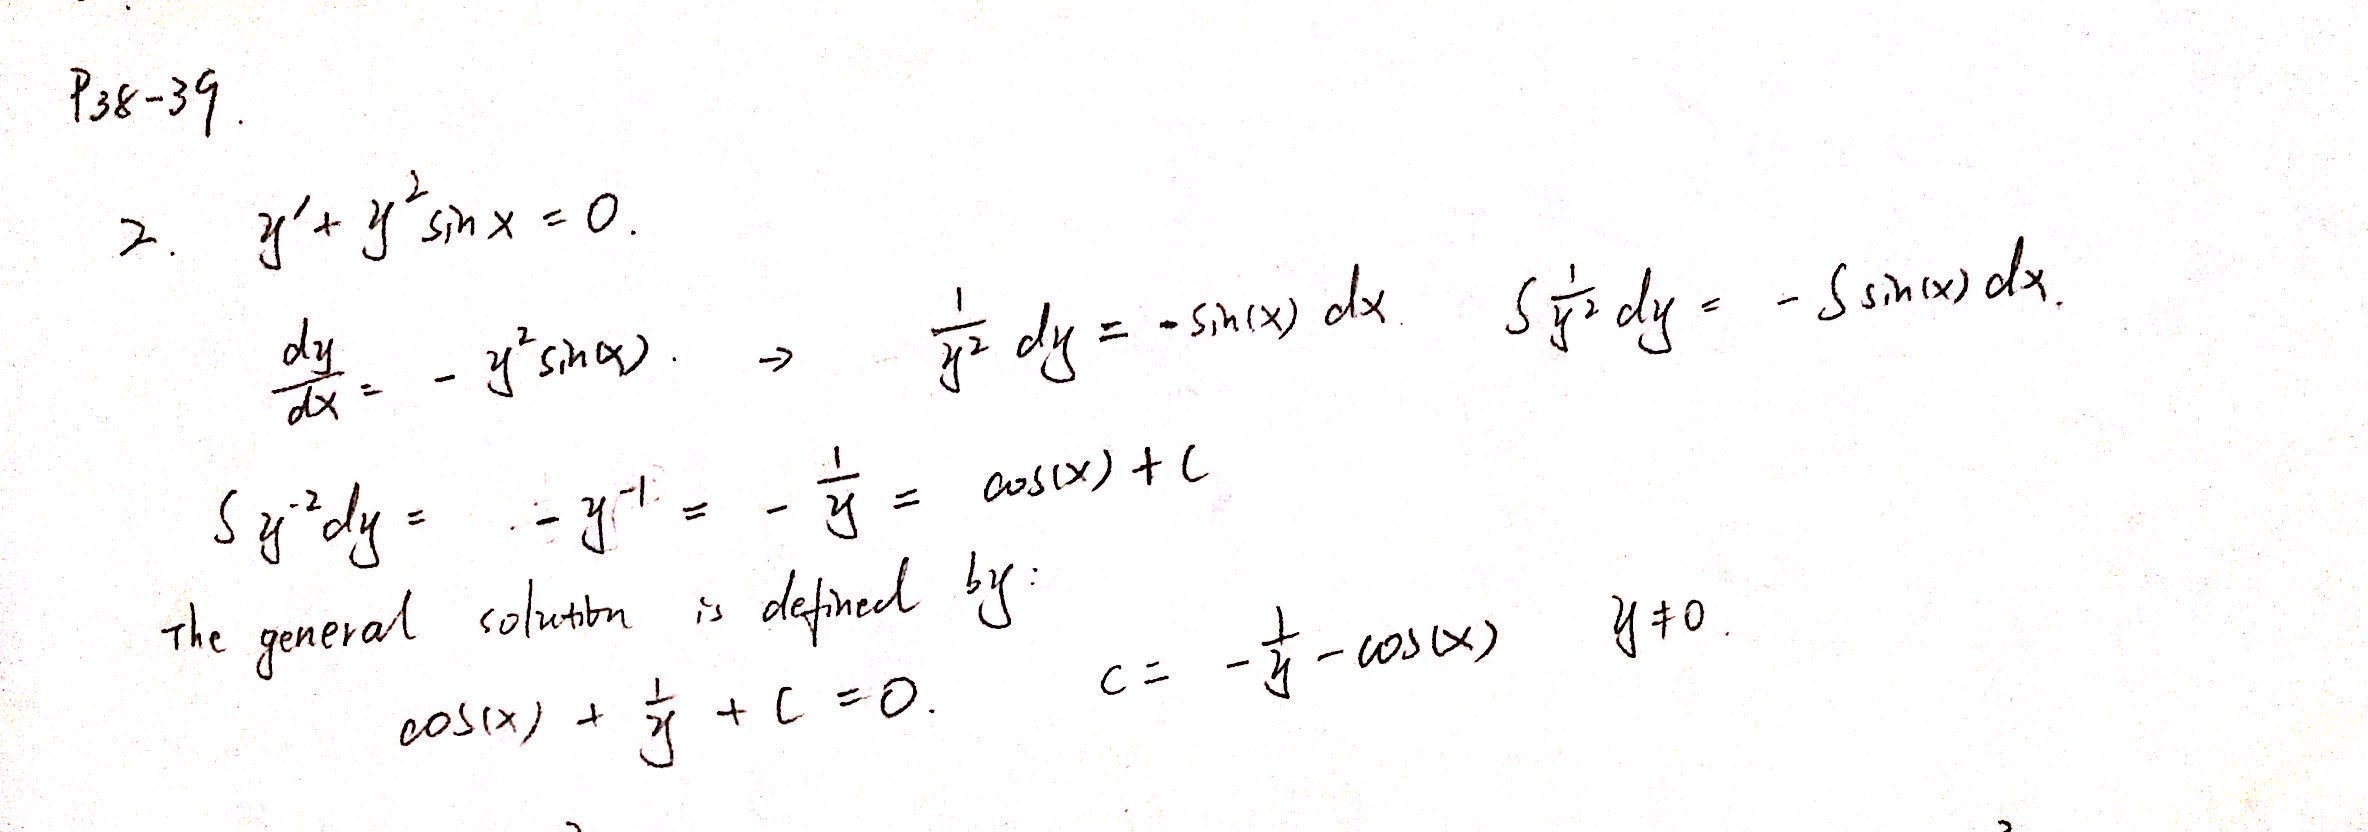 P38-39.
2. y' + y² sin x = 0.
dy/dx = - y² sin(x). → 1/y² dy = - sin(x) dx. ∫ 1/y² dy = - ∫ sin(x) dx.
∫ y⁻² dy = - y⁻¹ = - 1/y = cos(x) + C
The general solution is defined by:
cos(x) + 1/y + C = 0. C = - 1/y - cos(x) y ≠ 0.